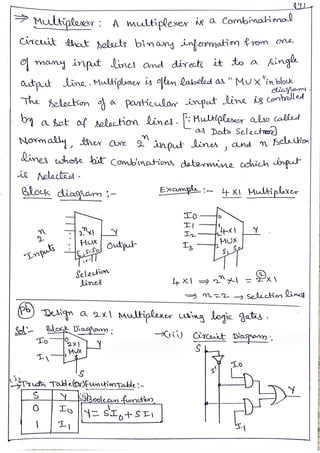 (41)
⇒ Multiplexer : A multiplexer is a combinational
circuit that selects binary information from one
of many input lines and directs it to a single
output line. Multiplexer is often labeled as "MUX" in block
diagrams.
The selection of a particular input line is controlled
by a set of selection lines. [∵ Multiplexer also called
as Data Selector]
Normally, ther are 2ⁿ input lines, and n selection
lines whose bit combinations determine which input
is selected.
Block diagram :-
Example :- 4x1 Multiplexer
2ⁿ
Inputs
2ⁿx1
MUX
Y
Output
S₁ S₀
Selection
lines
I0
I1
I2
I3
4x1
MUX
Y
S1 S0
4x1 ⇒ 2ⁿx1 = 2²x1
⇒ n=2 → selection lines
Pb) Design a 2x1 Multiplexer using logic gates.
Sol:- Block Diagram :
I0
I1
2x1
MUX
Y
S
→(iii) Circuit Diagram :
S
S'
I0
I1
Y
Truth Table (or) Function Table :-
S Y
0 I0
1 I1
Boolean function
Y = S'I0 + SI1